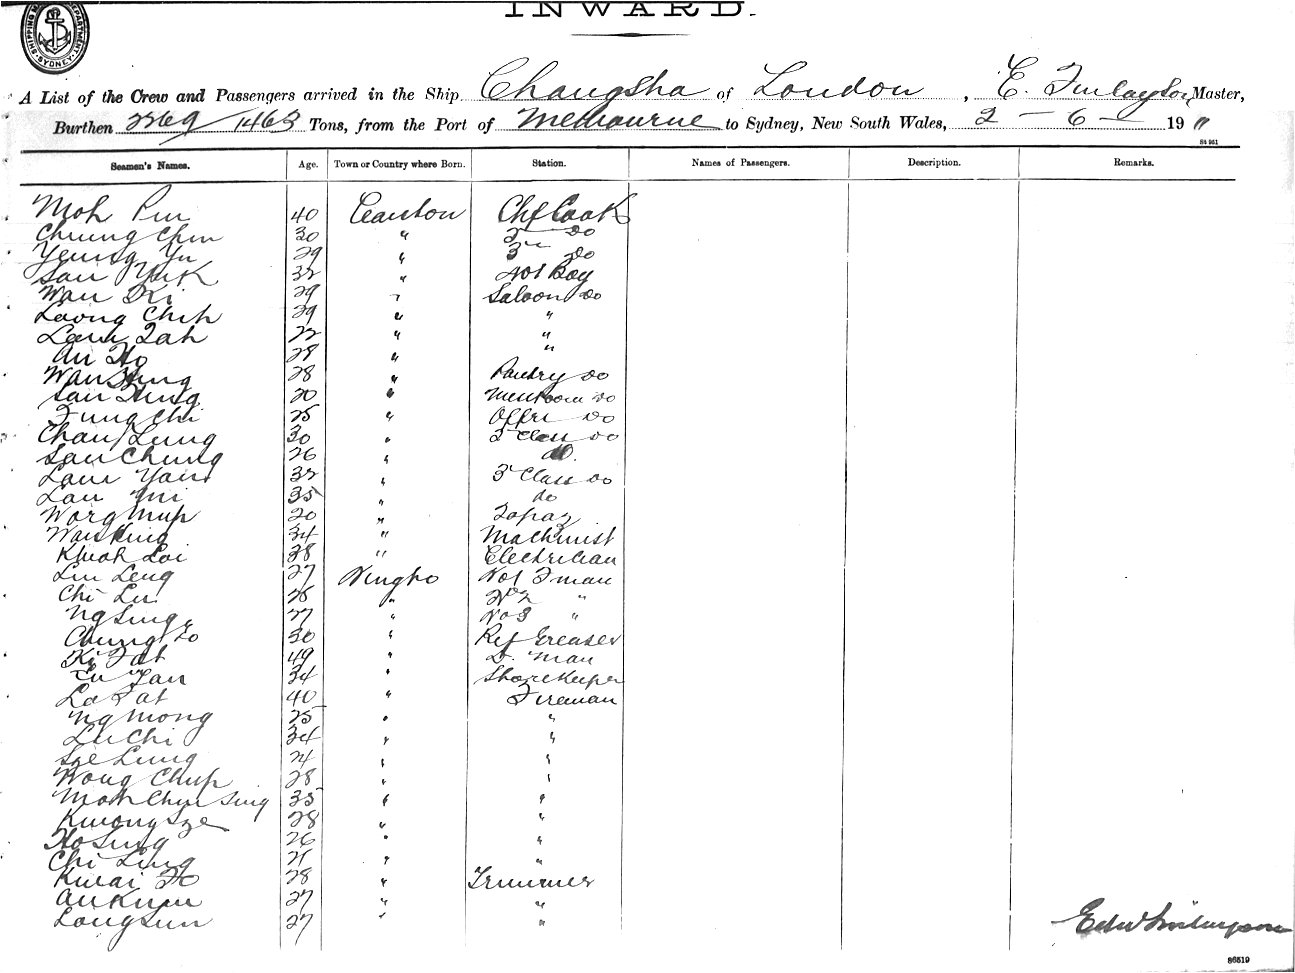 INWARD.
SHIPPING DEPARTMENT SYDNEY
A List of the Crew and Passengers arrived in the Ship Changsha of London, E. Finlayson Master,
Burthen 2269/1463 Tons, from the Port of Melbourne to Sydney, New South Wales, 2 - 6 - 1911
86 951
Seamen's Names. Age. Town or Country where Born. Station. Names of Passengers. Description. Remarks.
Moh Pun 40 Canton Chf Cook
Cheung Chin 30 " 2 do
Yeung Yu 29 " 3rd do
San Yuk 32 " No 1 Boy
Wan Ki 29 " Saloon do
Leong Chih 29 " "
Lam Tah 22 " "
Au Ho 28 " "
Wan Hing 28 " Pantry do
San Tung 20 " Messroom do
Fung Chi 25 " Offrs do
Chan Leung 30 " 2 Class do
San Chung 26 " do
Lam Yan 32 " 3 Class do
Lau Mi 35 " do
Wong Mup 20 " Topaz
Wan King 34 " Machinist
Kwok Loi 38 " Electrician
Lin Leng 27 Ningpo No 1 Fman
Chi Lu 26 " No 2 "
Ng Sing 27 " No 3 "
Chung Lo 30 " Ref Greaser
Ki Fat 49 " D. Man
Lu Tan 34 " Storekeeper
Lo Fat 40 " Fireman
Ng Mong 25 " "
Lu Chi 34 " "
Sze Lung 24 " "
Wong Chup 28 " "
Moh Chun Sing 35 " "
Kwong Sze 28 " "
Ho Sung 26 " "
Chi Ling 21 " "
Kwai Fo 28 " Trimmer
Au Kum 27 " "
Long Sun 27 " "
Edw Finlayson
86519